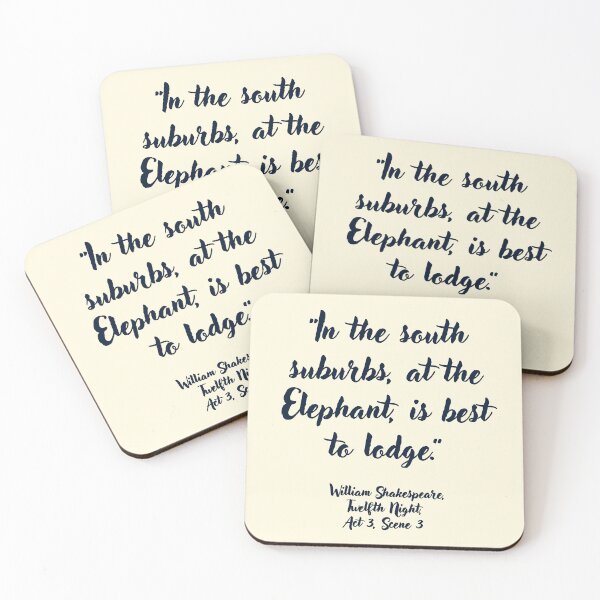 "In the south
suburbs, at the
Elephant, is bes
e."
"In the south
suburbs, at the
Elephant, is best
to lodge."
"In the south
suburbs, at the
Elephant, is best
to lodge."
William Shakes
Twelfth Nig
Act 3, Sc
"In the south
suburbs, at the
Elephant, is best
to lodge."
William Shakespeare,
Twelfth Night,
Act 3, Scene 3